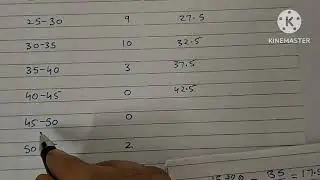 25-30 9 27.5
KINEMASTER
30-35 10 32.5
35-40 3 37.5
40-45 0 42.5
45-50 0
50 2
35 = 17.5